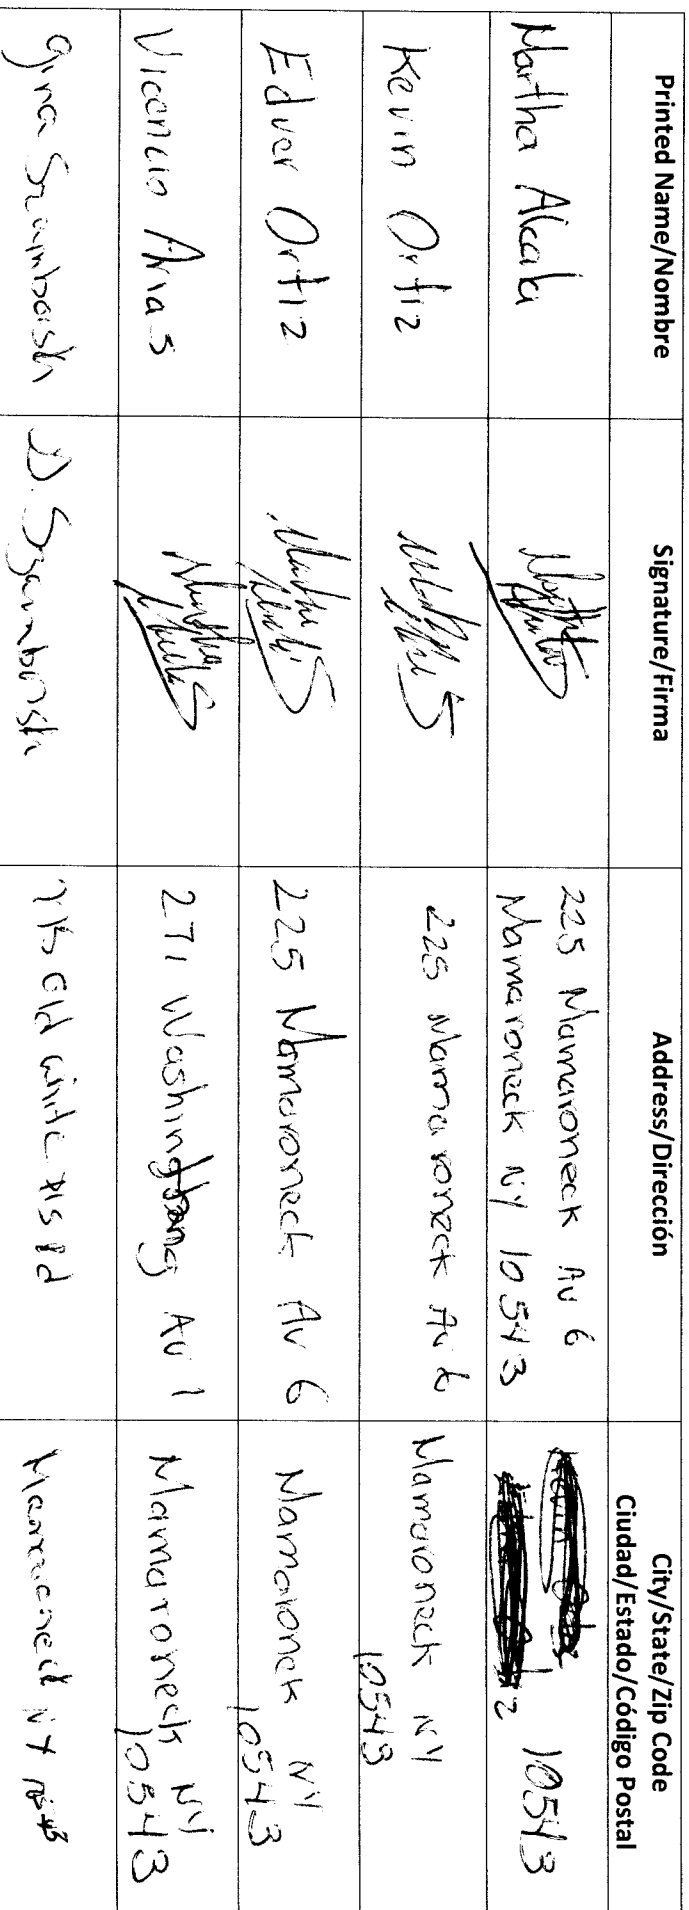 Printed Name/Nombre
Signature/Firma
Address/Dirección
City/State/Zip Code
Ciudad/Estado/Código Postal
Martha Alcala
225 Mamaroneck Av 6
Mamaroneck NY 10543
10543
Kevin Ortiz
225 Mamaroneck Av 6
Mamaroneck NY
10543
Edver Ortiz
225 Mamaroneck Av 6
Mamaronek NY
10543
Vicencio Arias
271 Washington Av 1
Mamaroneck NY
10543
Gina Szambosh
D. Szambosh
Old White Pls Rd
Mamaroneck NY